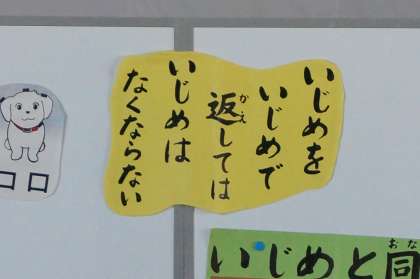 いじめを
いじめで
返しては
いじめは
なくならない
いじめと同
ココロ